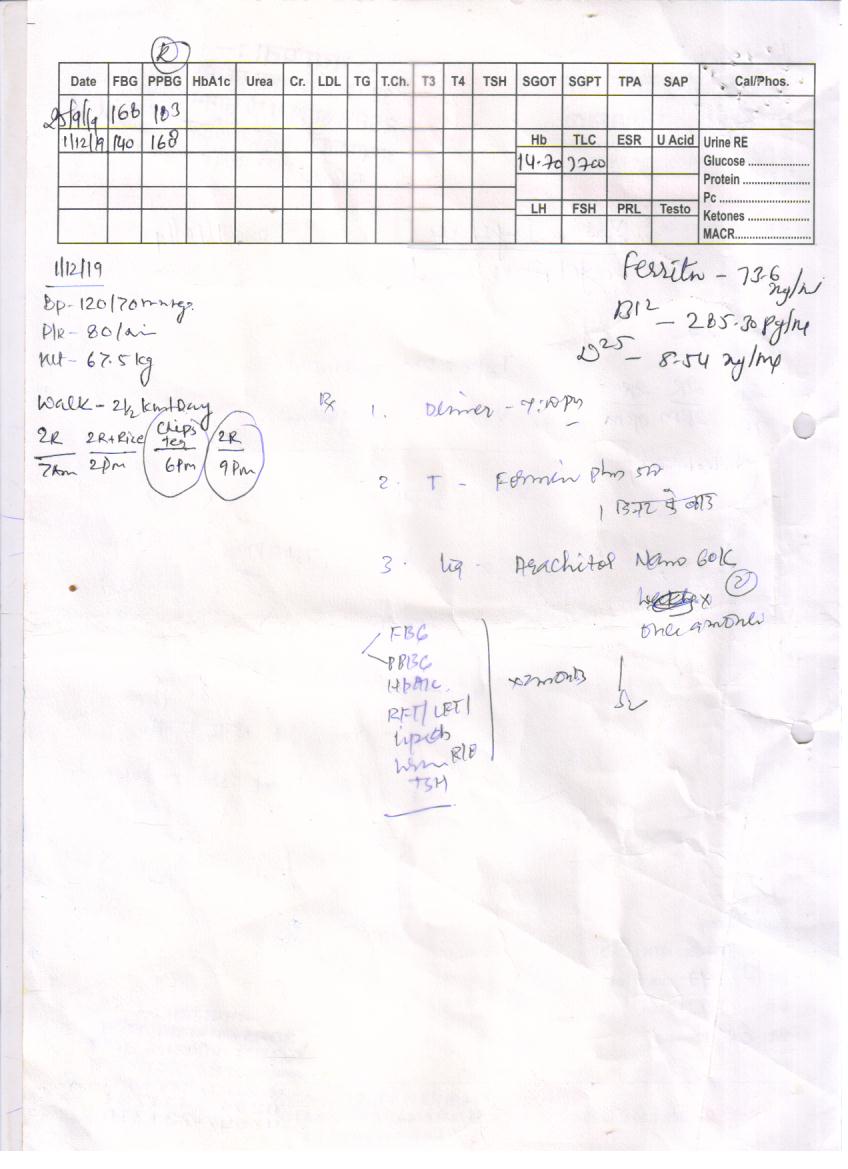 R
Date FBG PPBG HbA1c Urea Cr. LDL TG T.Ch. T3 T4 TSH SGOT SGPT TPA SAP Cal/Phos.
25/9/19 168 183
1/12/19 140 168
Hb TLC ESR U Acid
14.70 7700
LH FSH PRL Testo
Urine RE
Glucose ..................
Protein ....................
Pc ..........................
Ketones .................
MACR......................
1/12/19
Bp- 120/70mmHg.
PlR- 80/min
Wt- 67.5kg
Walk- 2½ km+Day
2R 2R+Rice Chips Tea 2R
7Am 2Pm 6Pm 9Pm
Ferritn - 73.6 ng/ml
B12 - 285.30 Pg/ml
D25 - 8.54 ng/ml
Rx
1. Dinner - 7:30 pm
2. T - Formin Plus 500
1 डिनर के बाद
3. Liq - Arachitol Nano 60K
2
once a month
FBG
PPBG
HbA1c.
RFT/LFT/
Lipids
Urine R/E
TSH
x2months